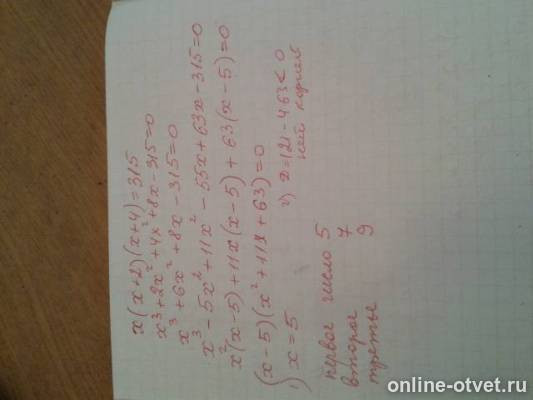 x(x+2)(x+4)=315
x³+2x²+4x²+8x-315=0
x³+6x²+8x-315=0
x³-5x²+11x²-55x+63x-315=0
x²(x-5)+11x(x-5)+63(x-5)=0
(x-5)(x²+11x+63)=0
1) x=5 2) D=121-4·63<0
нет корней
первое число 5
второе 7
третье 9
online-otvet.ru